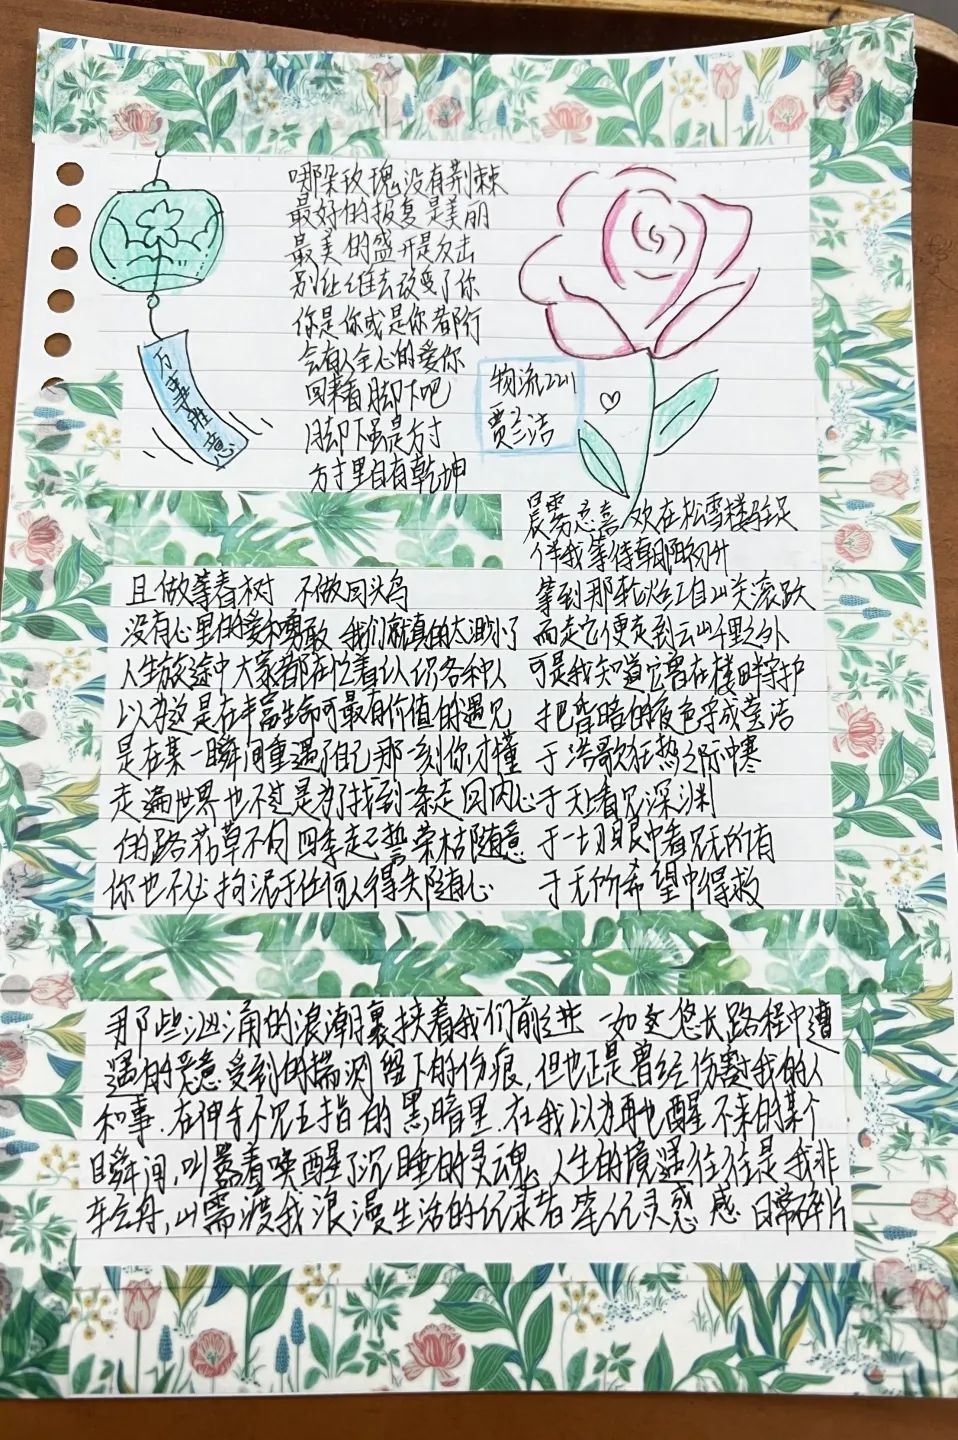 哪朵玫瑰没有荆棘
最好的报复是美丽
最美的盛开是反击
别让谁去改变了你
你是你或是你都行
会有人全心的爱你
回来看脚下吧
脚下虽是方寸
方寸里自有乾坤
万事胜意
物流2211
贾兰洁
且做等春树 不做回头鸟
没有心里的爱和勇敢 我们就真的太渺小了
人生旅途中大家都在忙着认识各种人
以为这是在丰富生命可最有价值的遇见
是在某一瞬间重遇了自己那一刻你才懂
走遍世界也不过是为了找到一条走回内心
的路花草不同四季起暂荣枯随意
你也不必拘泥于任何人得失随心
晨雾总喜欢在松雪楼驻足
伴我等待朝阳初升
等到那轮火红自山头滚跃
而走它便走到云山千里之外
可是我知道它曾在楼畔守护
把昏暗的夜色浮成莹洁
于浩歌狂热之际中寒
于天上看见深渊
于一切眼中看见无所有
于无所希望中得救
那些汹涌的浪潮裹挟着我们前进 一如这悠长路程中遭
遇的恶意受到的揣测留下的伤痕,但也正是曾经伤害我的人
和事.在伸手不见五指的黑暗里.在我以为再也醒不来的某个
瞬间,叫嚣着唤醒了沉睡的灵魂,人生的境遇往往是我非
车与舟,山需渡我浪漫生活的记录者 笔记灵感 感 日常碎片